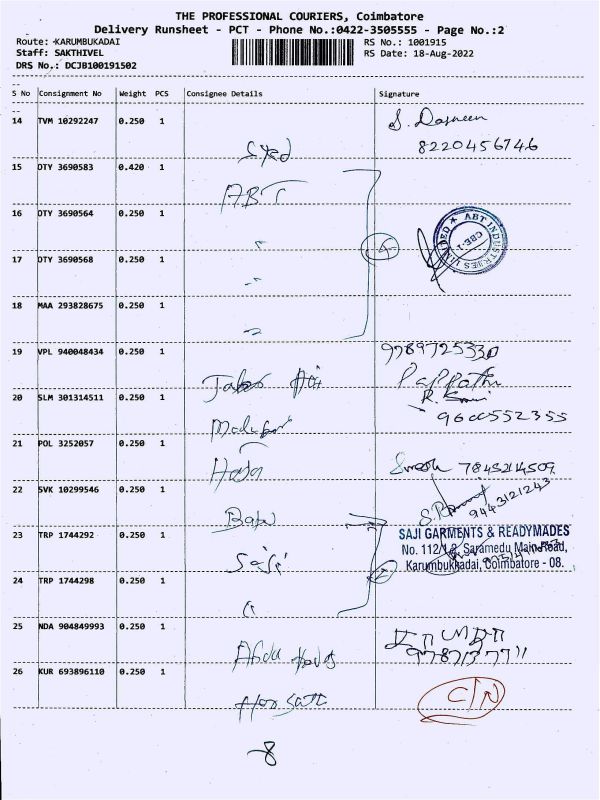 THE PROFESSIONAL COURIERS, Coimbatore
Delivery Runsheet - PCT - Phone No.:0422-3505555 - Page No.:2
Route: KARUMBUKADAI RS No.: 1001915
Staff: SAKTHIVEL RS Date: 18-Aug-2022
DRS No.: DCJB100191502
S No Consignment No Weight PCS Consignee Details Signature
14 TVM 10292247 0.250 1
8220456746
Syed
15 DTY 3690583 0.420 1
ABT
16 DTY 3690564 0.250 1
ABT INDUSTRIES LIMITED ★ CBE-1
17 DTY 3690568 0.250 1
18 MAA 293828675 0.250 1
19 VPL 940048434 0.250 1 9789725330
Pappathi
20 SLM 301314511 0.250 1
9600552355
21 POL 3252057 0.250 1
Suresh 7845214509
22 SVK 10299546 0.250 1
9443121243
Babu
23 TRP 1744292 0.250 1
SAJI GARMENTS & READYMADES
No. 112/ Saramedu Main Road,
Karumbukkadai, Coimbatore - 08.
Saji
24 TRP 1744298 0.250 1
25 NDA 904849993 0.250 1
9787137711
26 KUR 693896110 0.250 1
C/N
8